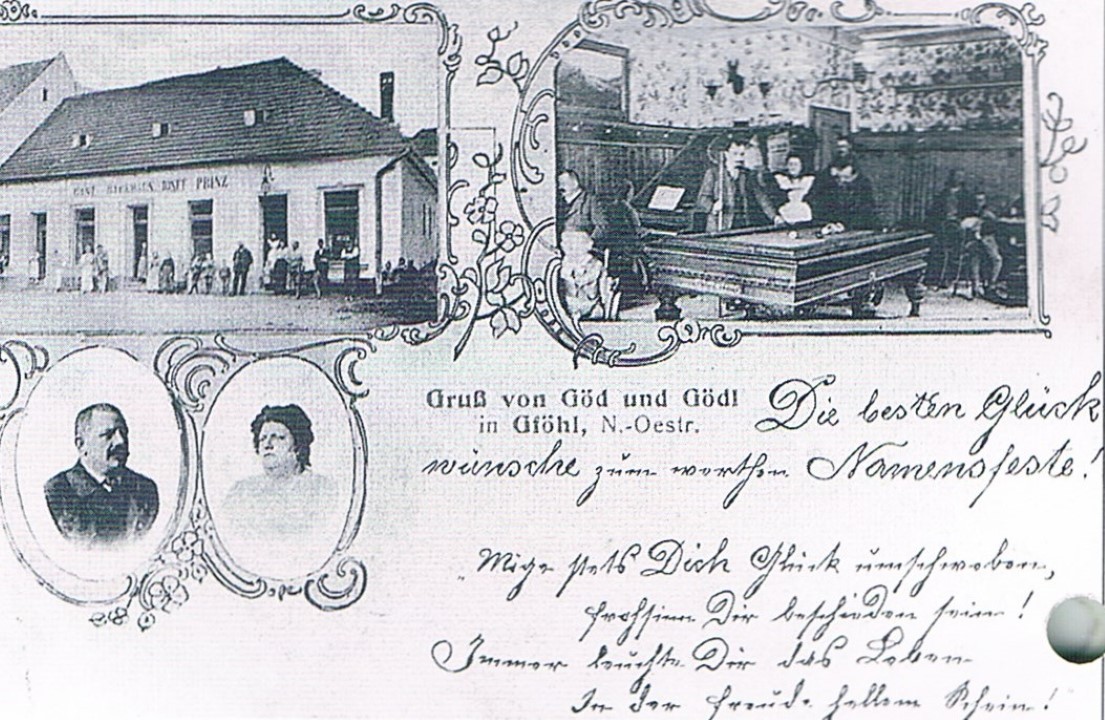 GAST JOSEF PRINZ
Gruß von Göd und Gödl
in Gföhl, N.-Oestr.
Die besten Glück
wünsche zum werthen Namensfeste!
Möge stets Dich Glück umschweben,
Frohsinn Dir beschieden sein!
Immer leuchte Dir das Leben
In der Freude hellem Schein!